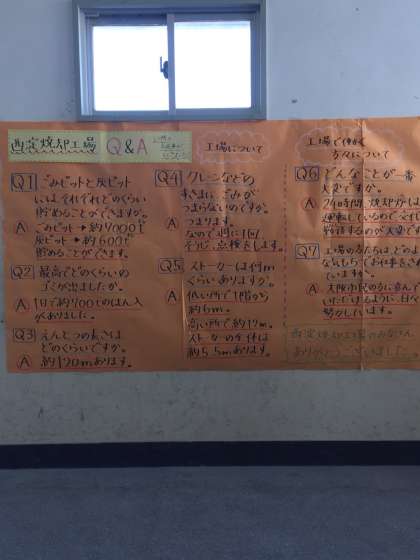 西淀焼却工場 Q&A
工場について
工場で働く
方々について
Q1 ごみピットと灰ピット
にはそれぞれどのくらい
貯めることができますか。
A ごみピット→約7000t
灰ピット→約600t
貯めることができます。
Q2 最高でどのくらいの
ゴミが出ましたか。
A 1日で約700tのはん入
がありました。
Q3 えんとつの長さは
どのくらいですか。
A 約120mあります。
Q4 クレーンなどの
すきまに ごみが
つまらないのですか。
A つまります。
なので 週に1回
そうじ、点検をします。
Q5 ストーカーは何m
くらいありますか。
A 低い所で1階から
約6m。
高い所で約12m。
ストーカーの全体は
約5.5mあります。
Q6 どんなことが一番
大変ですか。
A 24時間、焼却炉は
運転しているので
大変です
Q7 工場の方たちはどのよ
うな気もちでお仕事をされ
ていますか。
A 大阪市民の方に喜んで
いただけるように、日々
努力しています。
西淀焼却工場のみなさん
ありがとうございました